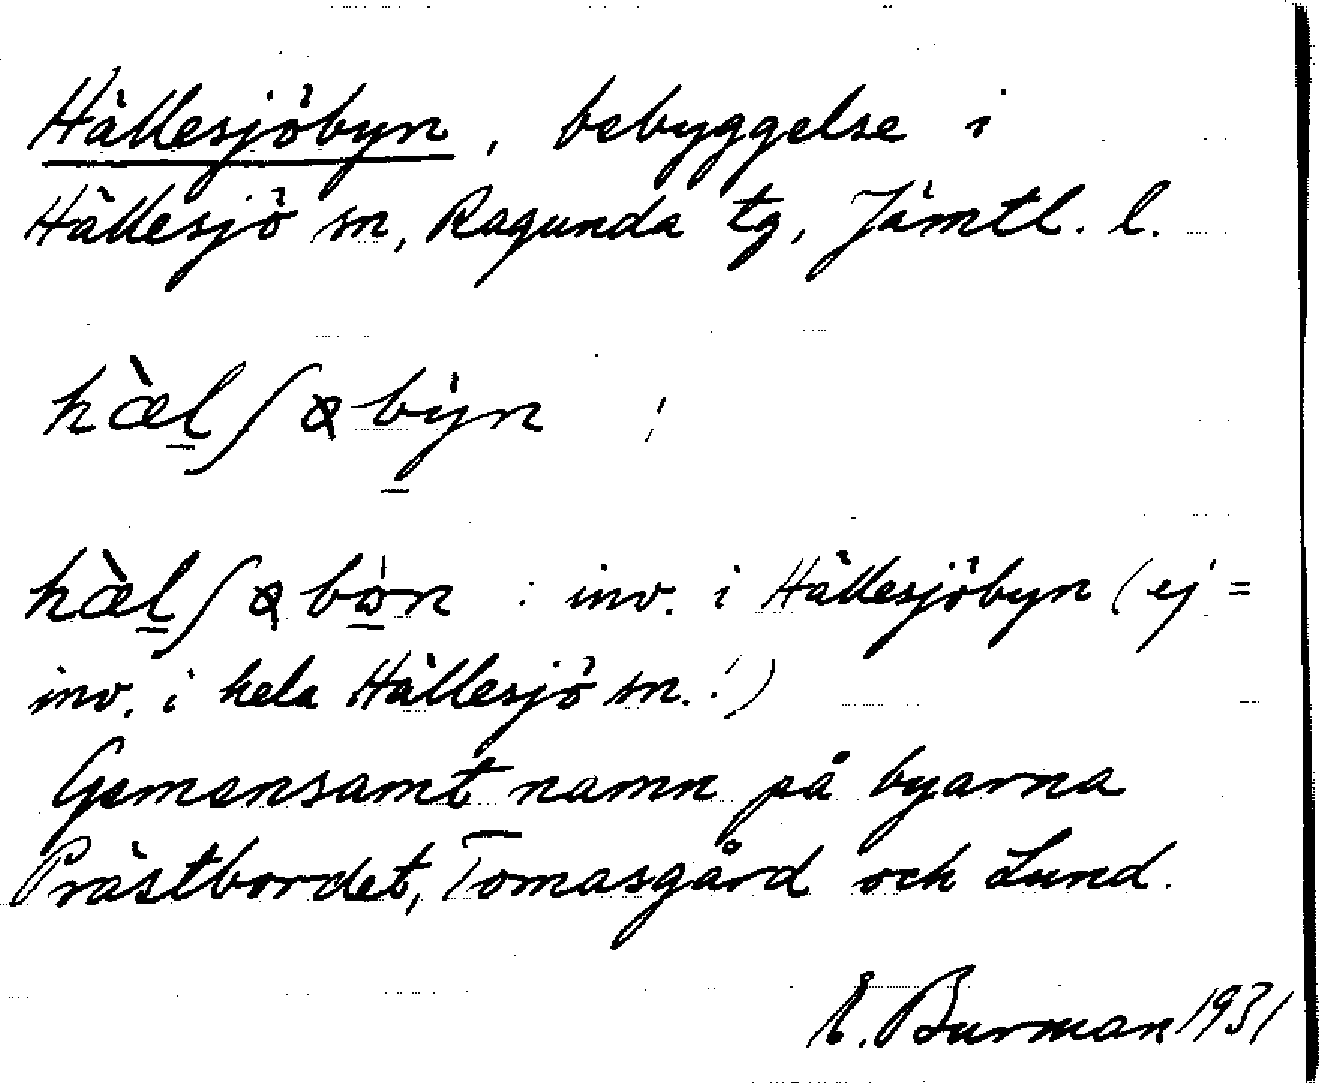 Hällesjöbyn, bebyggelse i
Hällesjö sn, Ragunda tg, Jämtl. l.
hæ̀l̠ʃɷby̠̍n ;
hæ̀l̠ʃɷbɷ̠̍n : inv. i Hällesjöbyn (ej =
inv. i hela Hällesjö sn.!)
Gemensamt namn på byarna
Prästbordet, Tomasgård och Lund.
E. Burman 1931